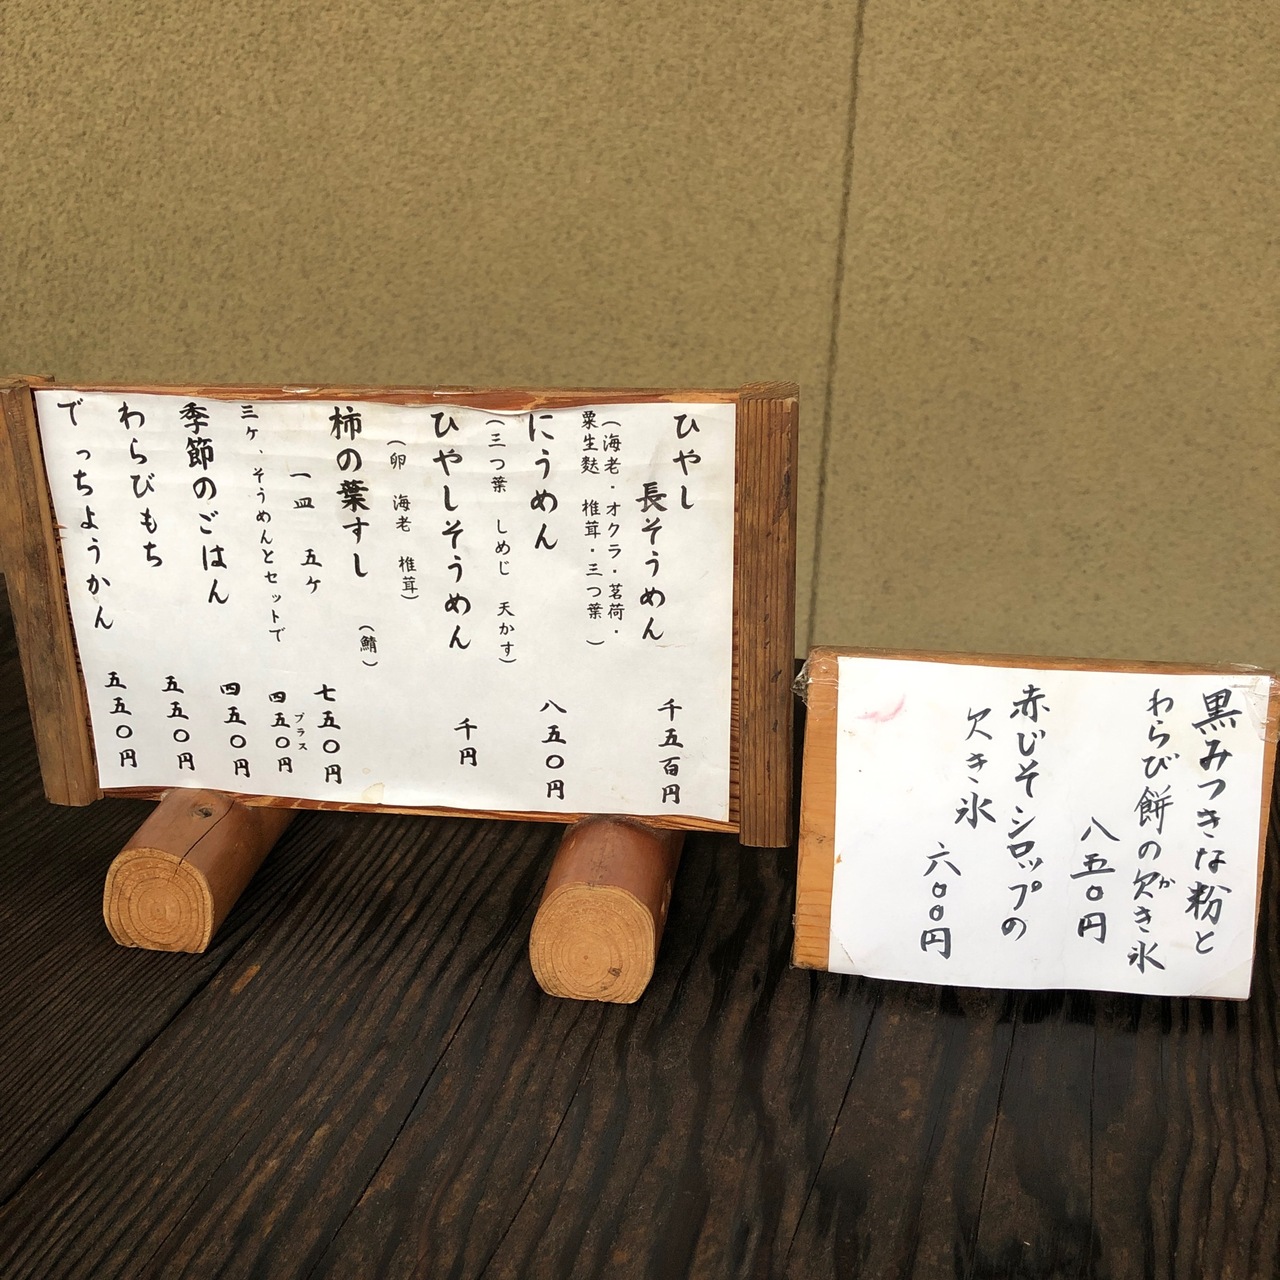 ひやし
長そうめん 千五百円
(海老・オクラ・茗荷・
粟生麩 椎茸・三つ葉)
にうめん 八五〇円
(三つ葉 しめじ 天かす)
ひやしそうめん 千円
(卵 海老 椎茸)
柿の葉すし (鯖)
一皿 五ケ 七五〇円
三ケ、そうめんとセットで プラス 四五〇円
季節のごはん 四五〇円
わらびもち 五五〇円
でっちようかん 五五〇円
黒みつきな粉と
わらび餅の欠き氷
か
八五〇円
赤じそシロップの
欠き氷
六〇〇円